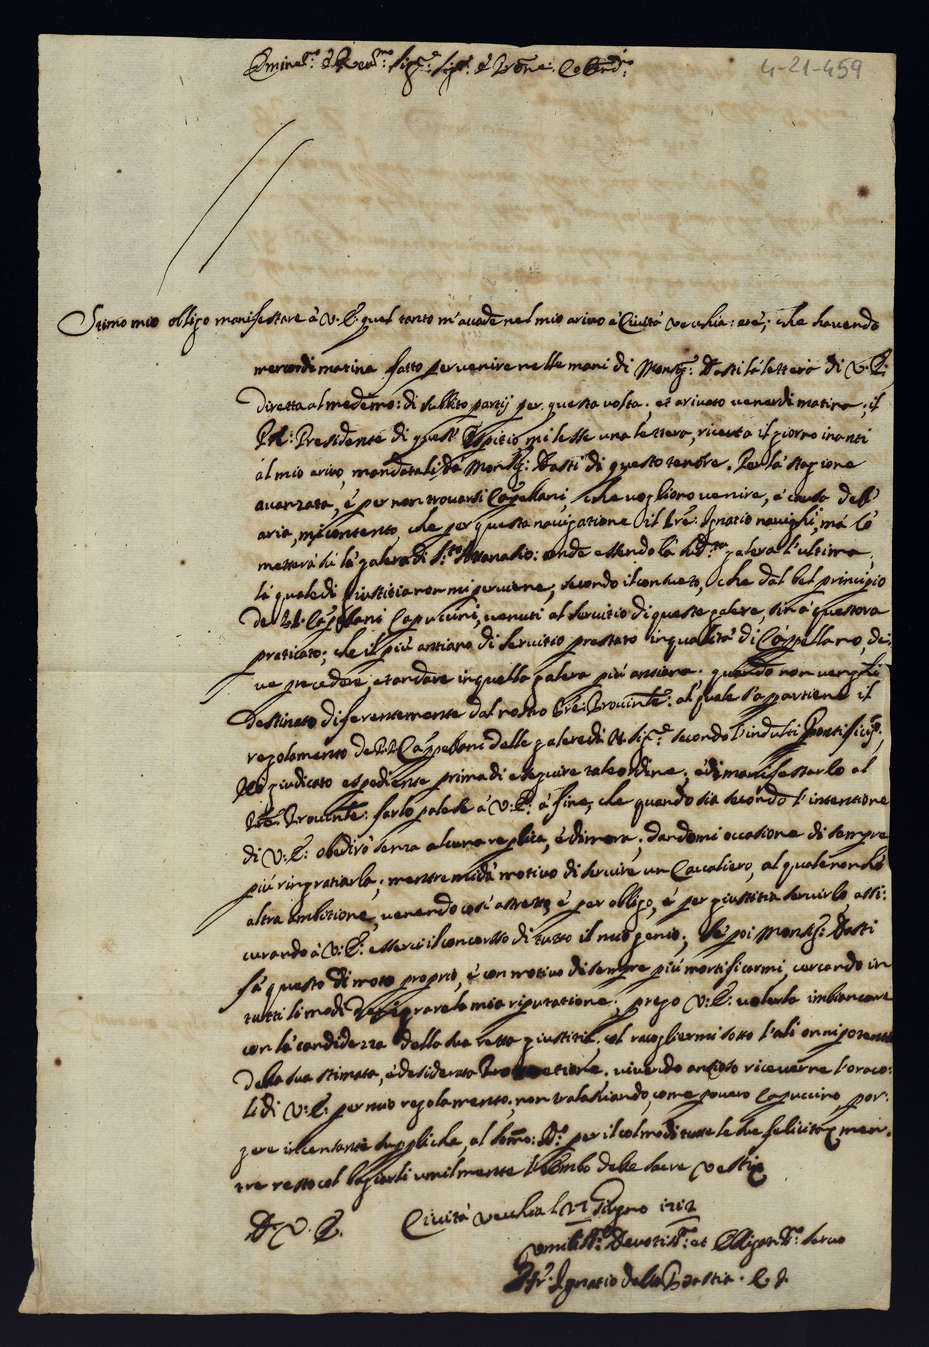 4-21-459
Emine.mo è Rev.mo Sig.re Sig.re è Prone. Colend.mo
Stimo mio obligo manifestare à V: E: quel tanto m'accade nel mio arivo à Cività Vecchia: et è; che havendo
mercordi matina fatto pervenire nelle mani di Monsig.r Basti la lettera di V: E:
diretta al medemo: di subbito partij per questa volta; et arivato venerdi matina; il
Presidente di quest' Ospitio mi lesse una lettera, riceuta il giorno inanti
al mio arivo, mandatali dà Monsig.r Basti di questo tenore. Per la stagione
avanzata, è per non trovarsi Capellani, che vogliono venire, à causa dell'
aria, mi contento, che per questa navigatione il Pre: Ignatio navighi; mà lo
metterà sù la galera di S.to : onde essendo la sud.ta galera l'ultima,
la quale di giustitia non mi perviene, secondo il consueto, che dal bel principio
de PP. Capellani Capuccini, venuti al servitio di queste galere, sin à quest'ora
praticato; che il più antiano di servitio prestato in qualità di Cappellano, de:
ve precedere, et andare in quella galera più antiana; quando non venghi
destinato diferentemente dal nostro Pre: Provin.le: al quale s'appartiene il
regolamento de PP. Cappellani delle galere di N. Sig.re secondo l'indulti Pontificij;
Hò giudicato espediente prima di eseguire tale ordine; è di manifestarlo al
Pre: Provin.le: farlo palese à V: E: à fine, che quando sia secondo l'intentione
di V: E: obedirò senza alcuna replica, è dimora; dandomi occasione di sempre
più ringratiarla; mentre mi dà motivo di servire un Cavaliero, al quale non hò
altra ambitione, venendo così astretto, è per obligo, è per giustitia servirlo, assi:
curando à V: E: esservi il concorso di tutto il mio genio; Se poi Monsig.r Basti
fà questo di moto proprio, è con motivo di sempre più mortificarmi, cercando in
tutti li modi la mia riputatione; prego V: E: volerla imbiancare
con la candidezza della sua retta giustitia; col racogliermi sotto l'ali onnipotenti
della sua stimata, è desiderata Protettione. vivendo ansioso riceverne l'oraco:
li di V: E: per mio regolamento; non tralasciando, come povero Capuccino, por:
gere incensante suppliche, al Som.o: Dio per il colmo di tutte le sue felicità; men:
tre resto col bagiarli umilmente l'lembo delle sacre vesti
Di V: E: Cività Vecchia li 17 Giugno 1712
Umiliss.o: Devotiss.o: et Obligatiss.o: servo
Fr: Ignatio della Bastia. C.